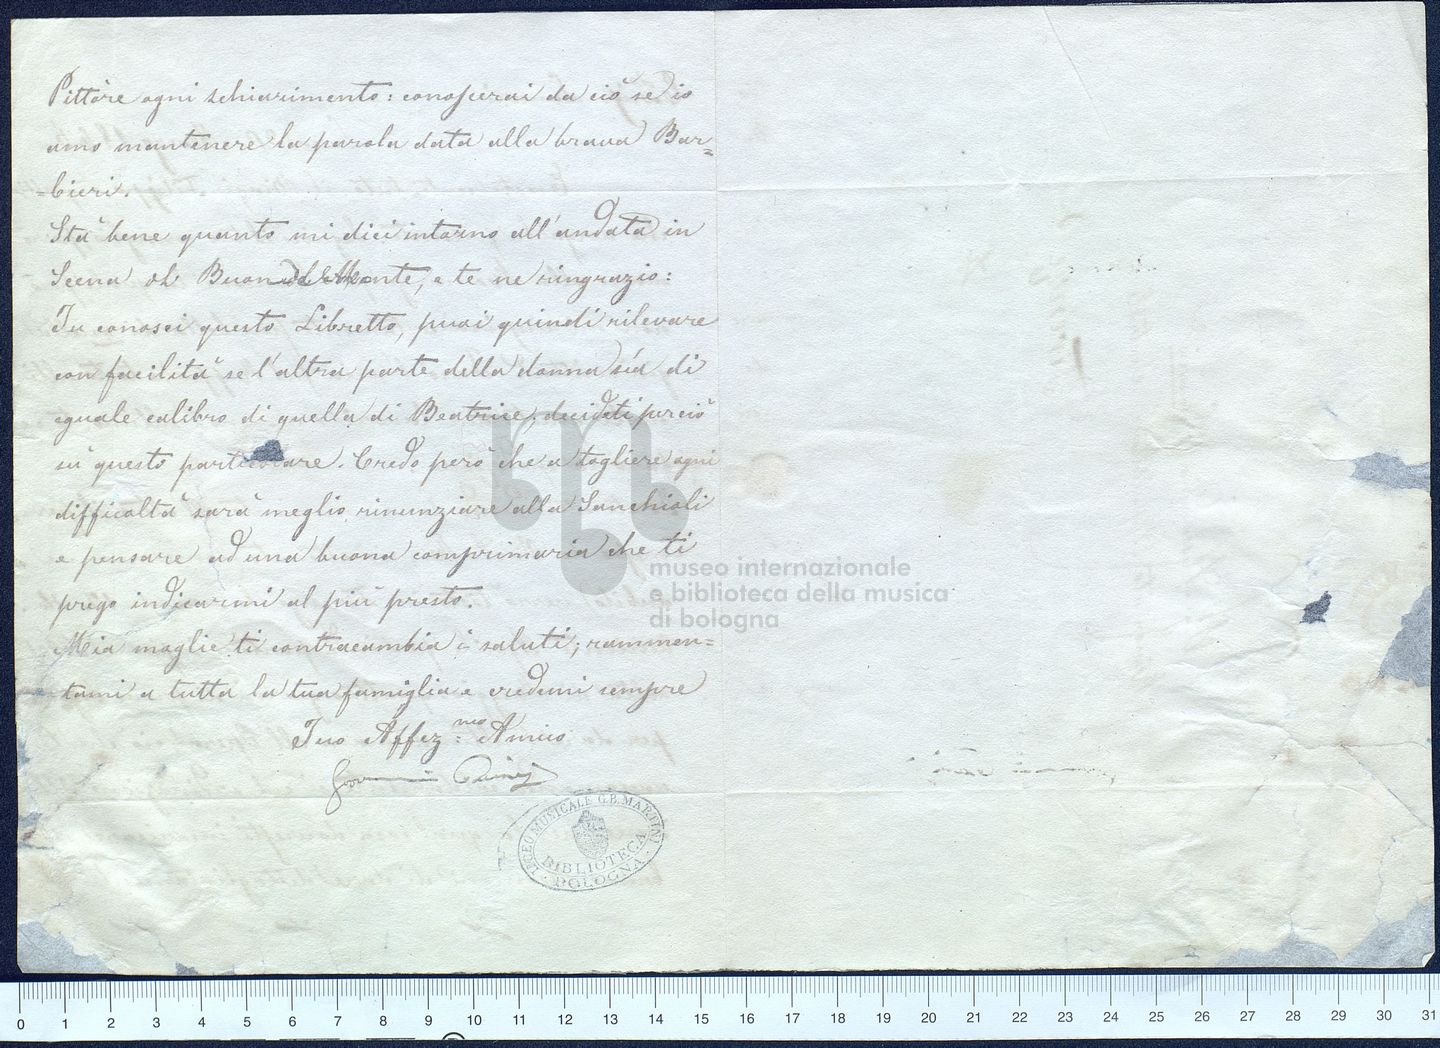 Pittore ogni schiarimento: conoscerai da ciò se io
amo mantenere la parola data alla brava Bar=
=bieri.
Stà bene quanto mi dici intorno all'andata in
Scena ol Buondelmonte, e te ne ringrazio:
Tu conosci questo Libretto, puoi quindi rilevare
con facilità se l'altra parte della donna sía di
eguale calibro di quella di Beatrice, decidati perciò
su questo particolare. Credo però che a togliere ogni
difficoltà sarà meglio rinunziare alla Sanchioli
e pensare ad una buona comprimaria che ti
prego indicarmi al più presto.
Mia moglie ti contracambia i saluti; rammen=
tami a tutta la tua famiglia e credimi sempre
Tuo Affez.mo Amico
Giovanni
LICEO MUSICALE G.B. MARTINI
BIBLIOTECA
BOLOGNA
museo internazionale
e biblioteca della musica
di bologna
0 1 2 3 4 5 6 7 8 9 10 11 12 13 14 15 16 17 18 19 20 21 22 23 24 25 26 27 28 29 30 31